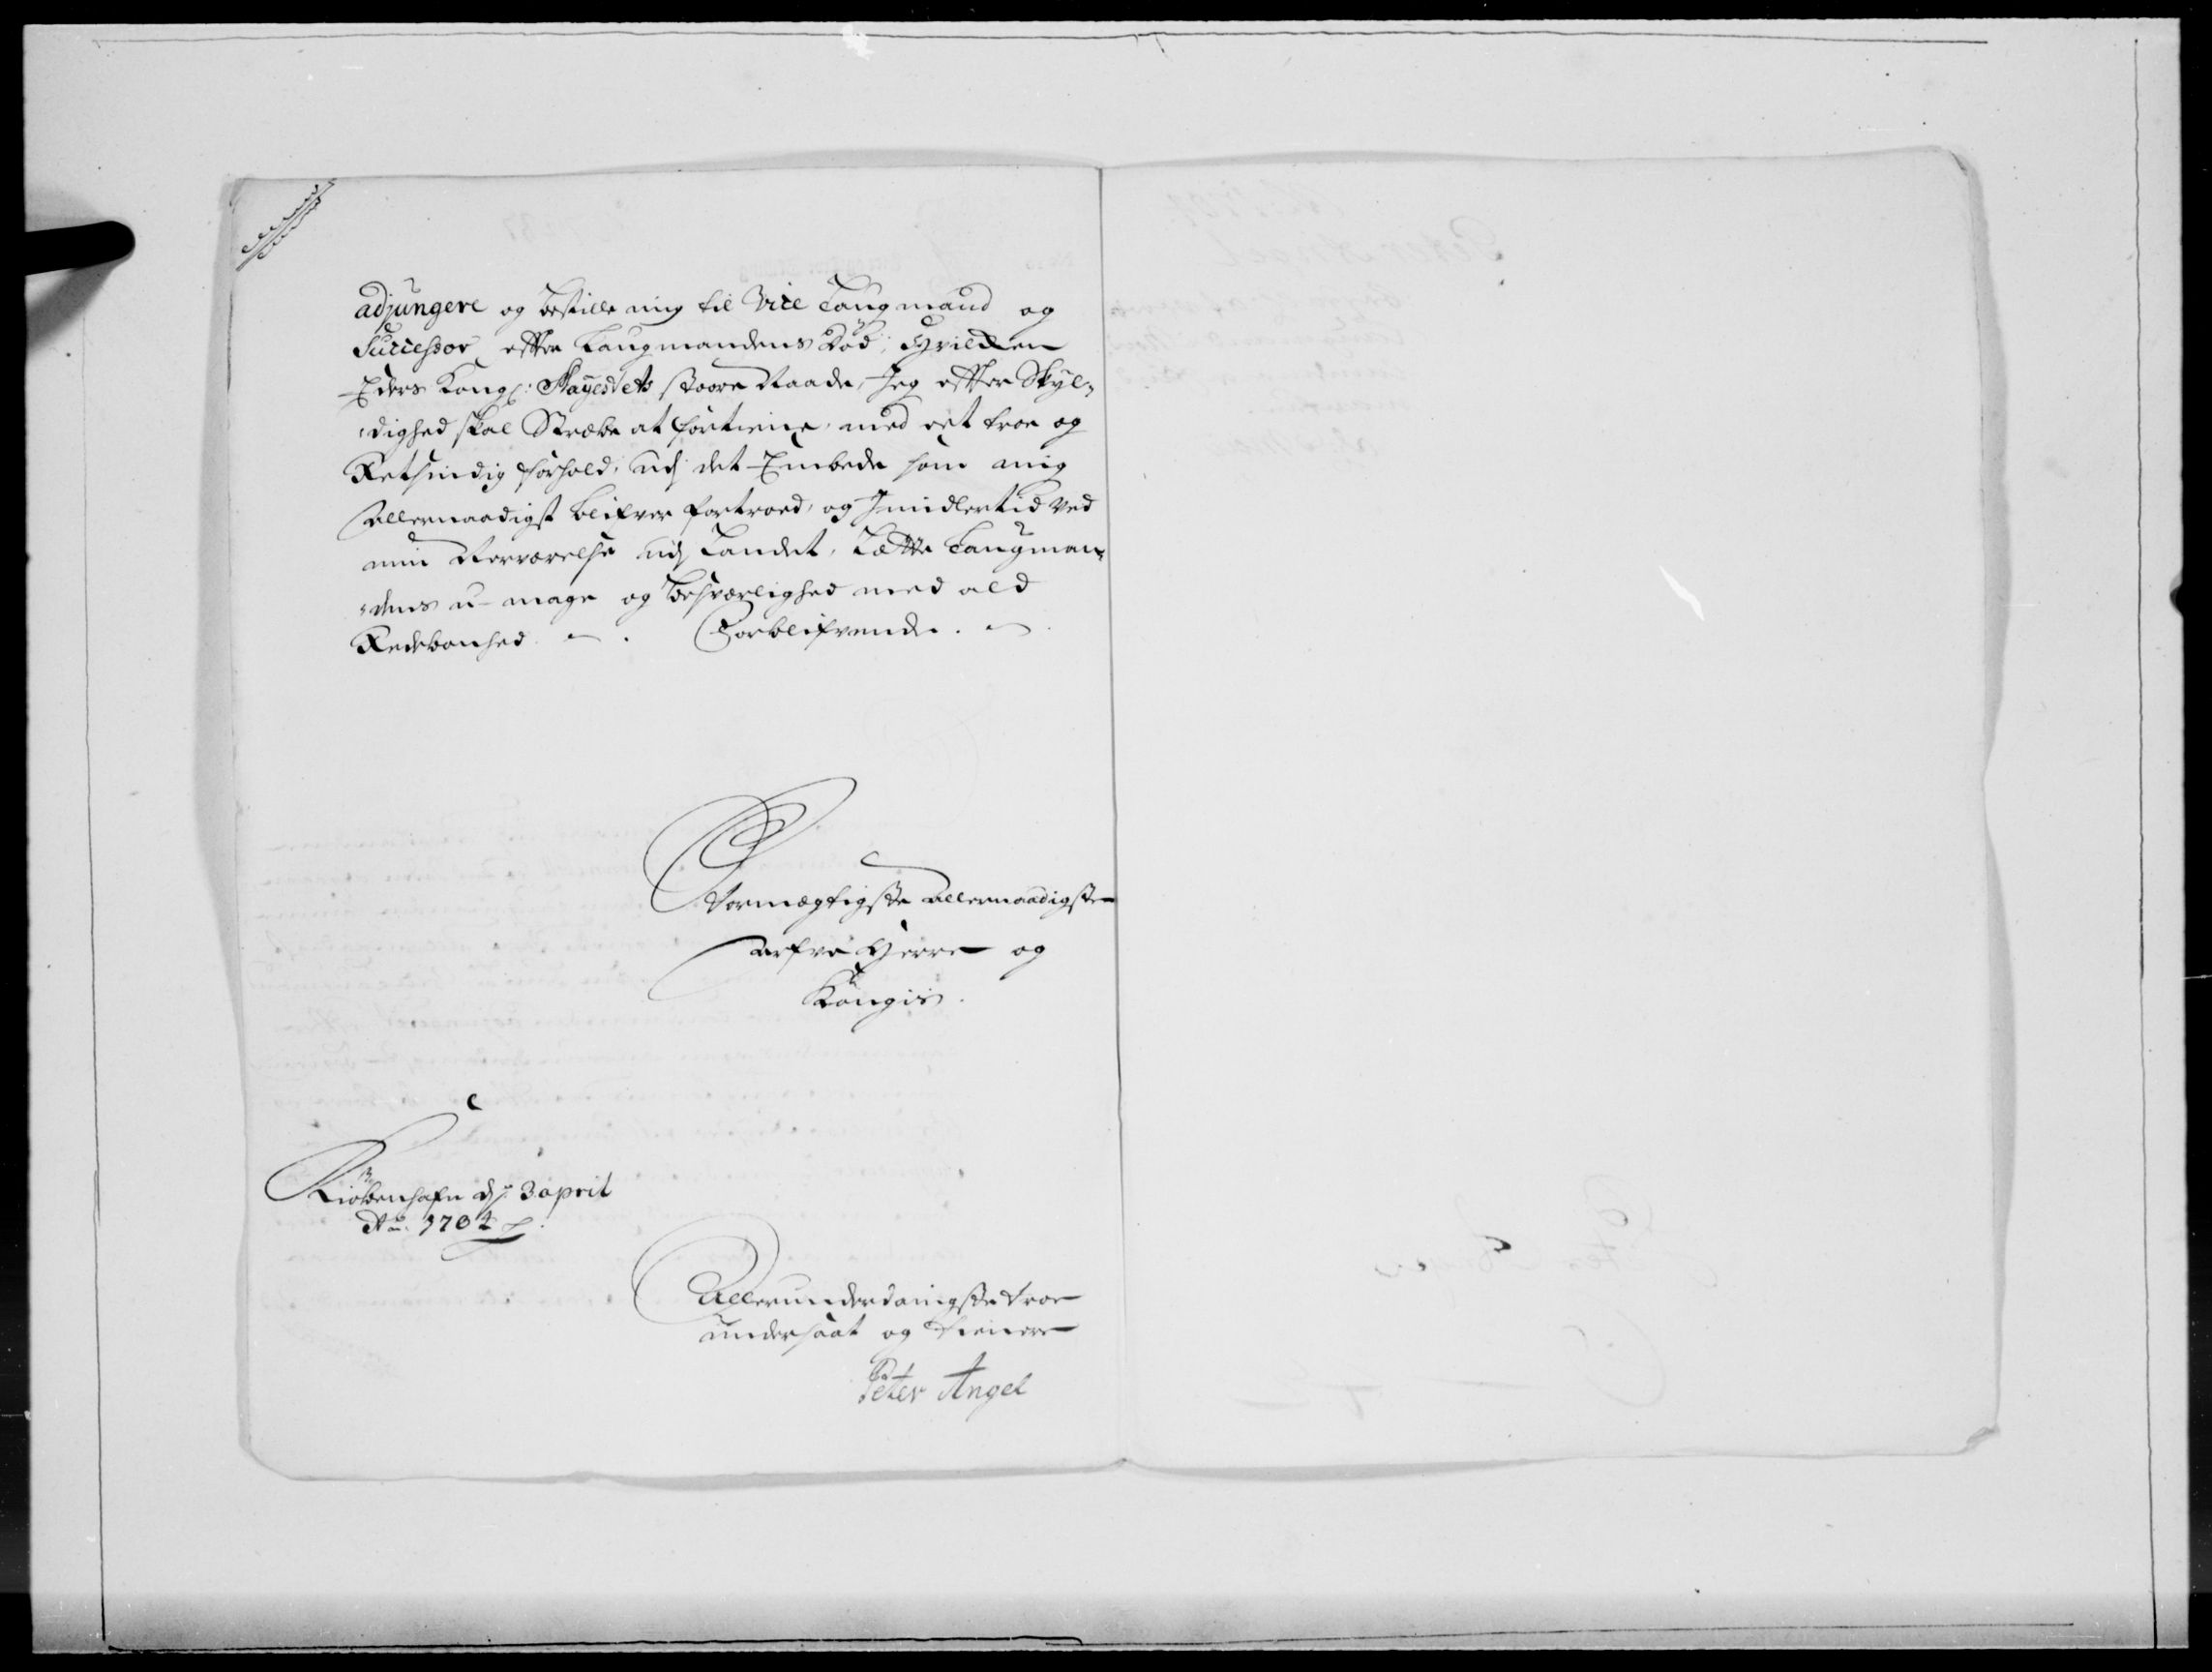 adjungere og bestille mig til Vice Laugmand og
Successor efter Laugmandens Död, Hvilcken
Eders Kongl: Mayestets stoore Naade, Jeg efter Skyl,,
,,dighed skal Stræbe at fortiene, med ret troe og
Retsindig forhold, udj det Embede som mig
Allernaadigst blifver fortroed, og Jmidlertid ved
min Nærværelse udj Landet, Lætte Laugman,,
,,dens u-mage og besværlighed med ald
Redebonhed. Forblifvende.
Stormægtigste allernaadigste
arfve Herre og
Kongis
Kiöbenhafn dj. 3 april
Ao. 1704
Allerunderdanigste troe
undersaat og tienere
Peter Angel